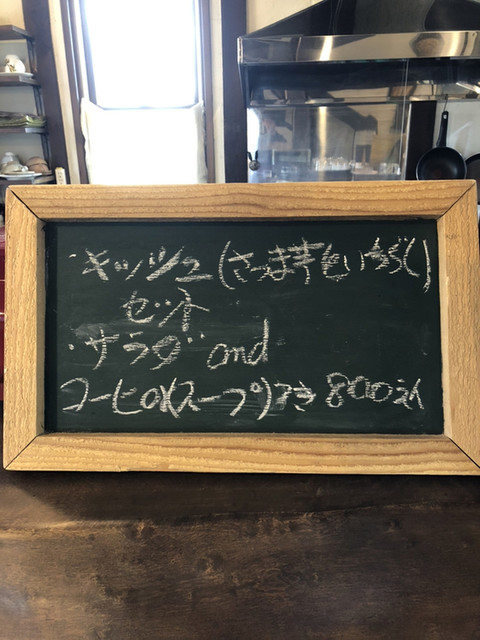 ・キッシュ(さつま芋といちじく)
セット
・サラダ and
コーヒorスープ付き 800えん